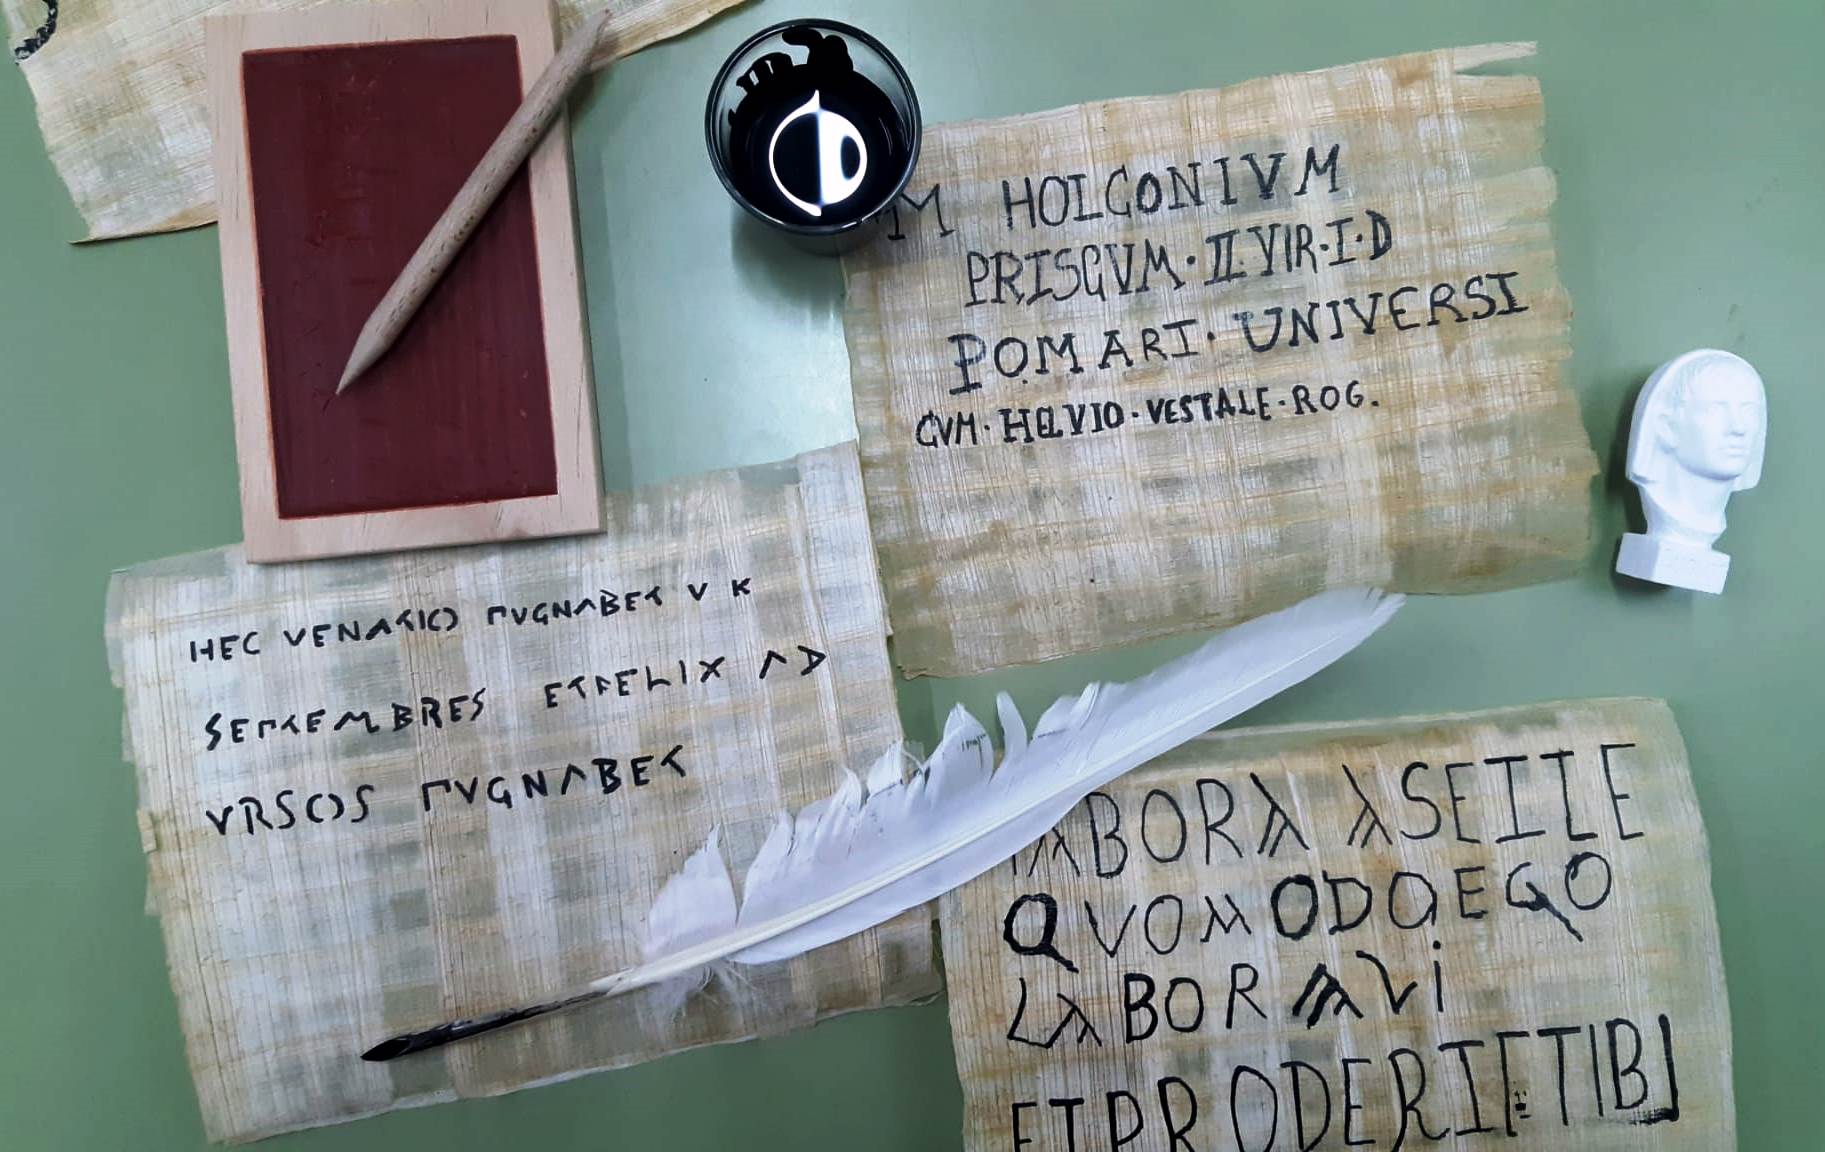 M HOLCONIVM
PRISCVM · II VIR · I · D
POMARI · UNIVERSI
CVM · HELVIO · VESTALE · ROG.
HEC VENATIO PVGNABET V K
SEPTEMBRES ET FELIX AD
VRSOS PVGNABET
LABORA ASELLE
QVOMODO EGO
LABORAVI
ET PRODERIT TIBI